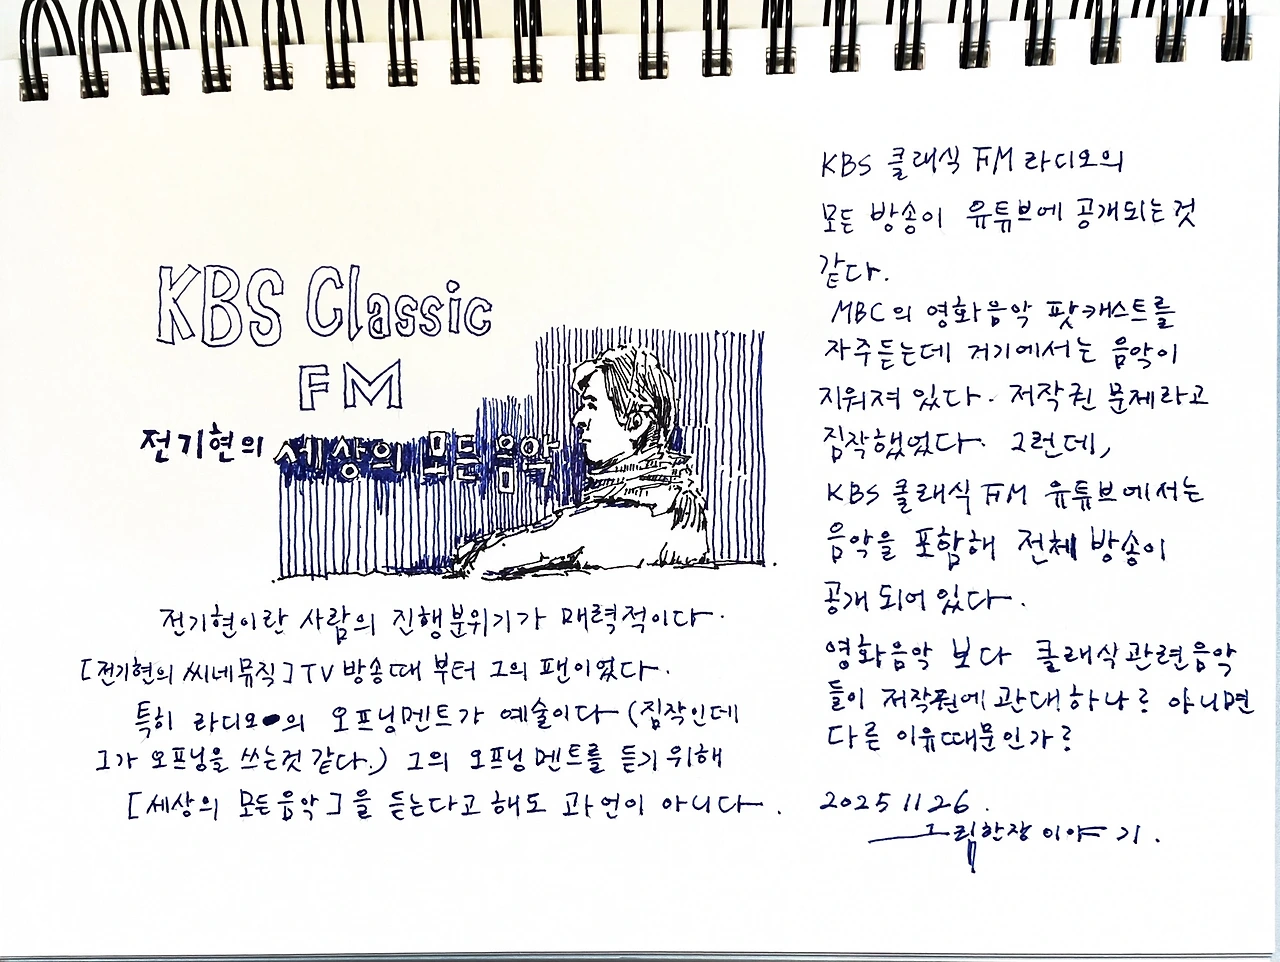 KBS Classic
FM
전기현의 세상의 모든 음악
전기현이란 사람의 진행분위기가 매력적이다.
[전기현의 씨네뮤직] TV 방송때 부터 그의 팬이었다.
특히 라디오의 오프닝멘트가 예술이다 (짐작인데
그가 오프닝을 쓰는것 같다.) 그의 오프닝멘트를 듣기 위해
[세상의 모든음악]을 듣는다고 해도 과언이 아니다.
KBS 클래식 FM 라디오의
모든 방송이 유튜브에 공개되는것
같다.
MBC의 영화음악 팟캐스트를
자주듣는데 거기에서는 음악이
지워져 있다. 저작권 문제라고
짐작했었다. 그런데,
KBS 클래식 FM 유튜브에서는
음악을 포함해 전체 방송이
공개 되어 있다.
영화음악 보다 클래식관련음악
들이 저작권에 관대하나? 아니면
다른 이유때문인가?
2025 11 26.
그림한장 이야기.